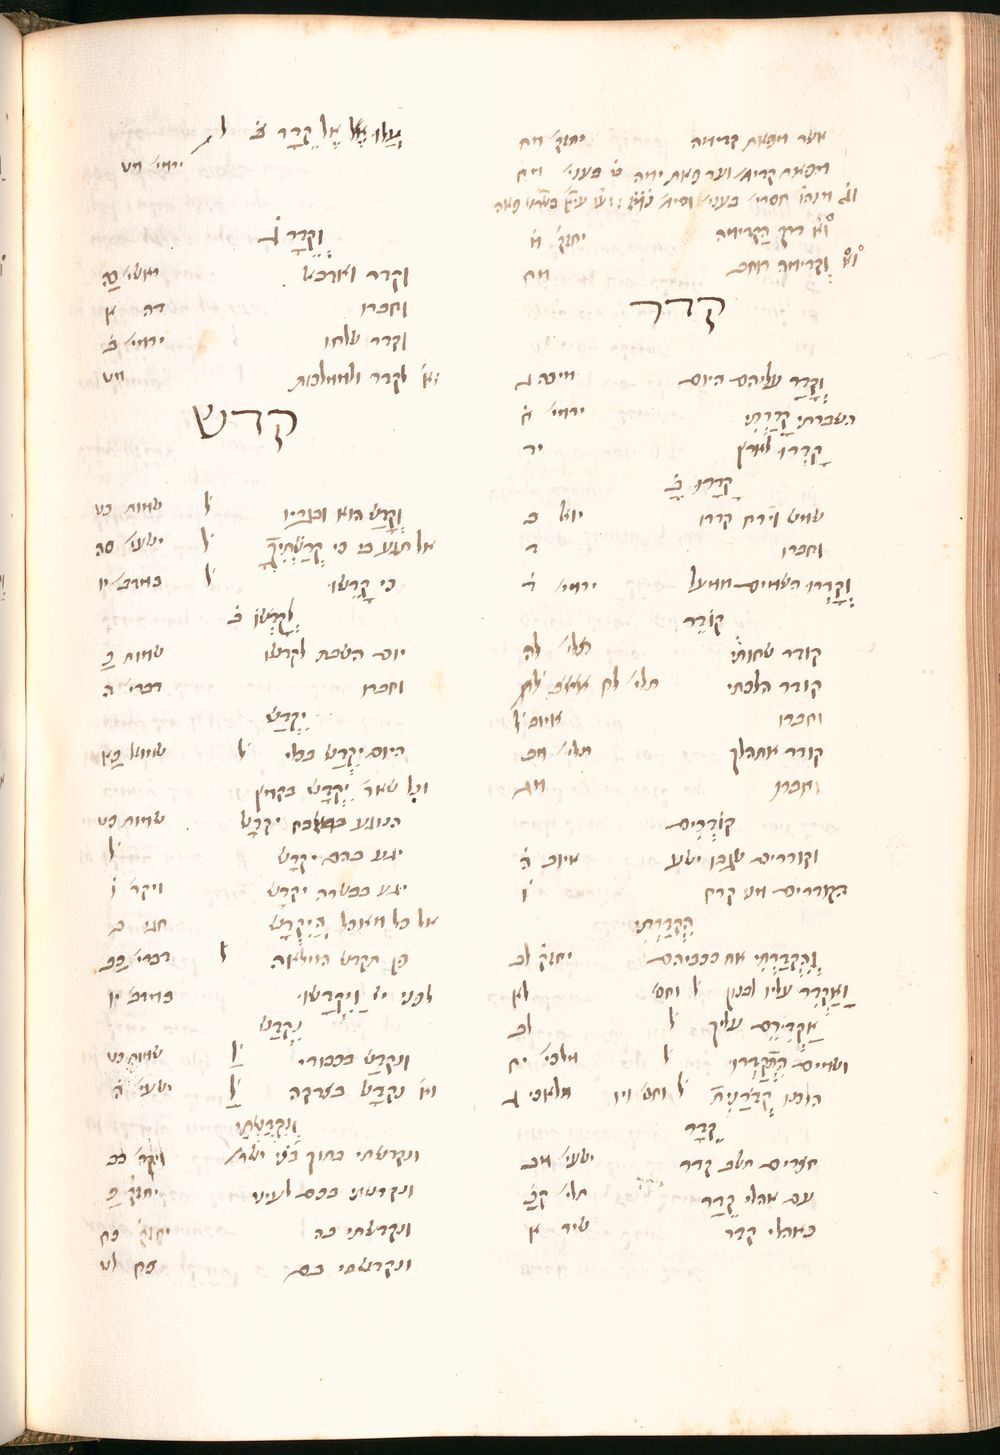 אשר מפאת קדימה יחזק׳ מח
מפאת קדי׳ ועד פאת ימה
דרך הקדימה יחזק׳
וקדימה רוחב מח
קדר
וְקָדַר עליהם היום מיכה ג
השברתי קָדַרְתִּי ירמי׳ ח
קָדְרוּ לארץ יד
קָדָרוּ ב
שמש וירח קדרו יואל ב
וחברו ד
וְקָדְרוּ השמים ממעל ירמי׳ ד
קוֹדֵר
קודר שחותי תלי׳ לה
קודר הלכתי תלי׳ לח
וחברו איוב ל
קודר אתהלך תלי׳ מב
וחברו מג
קוֹדְרִים
וקודרים שגבו ישע איוב ה
הקודרים מני קרח ו
הִקְדַּרְתִּי
וְהִקְדַּרְתִּי את ככביהם יחזק׳ לב
וָאַקְדִּר עליו לבנון ל׳ וחס׳ לא
אַקְדִּירֵם עליך ל׳ לב
ושמים הִתְקַדְּרוּ ל׳ מלכי׳ יח
הלכנו קְדֹרַנִּית ל׳ וחס׳ ויו מלאכי ג
קֵדָר
חצרים תשב קדר ישעי׳ מב
עם אהלי קֵדָר תלי׳ קכ
כאהלי קדר שיר א
וַעֲלוּ אֶל קֵדָר ל׳
ירמי׳ מט
וְקֵדָר ג
וקדר ואדבאל ראשי׳ כה
וחברו דה א
וקדר שלחו ירמי׳ ב
לקדר ולממלכות מט
קדש
וְקָדַשׁ הוא ובגדיו ל׳ שמות כט
אל תגש בי כי קְדַשְׁתִּיךָ ל׳ ישעי׳ סה
כי קָדֵשׁוּ ל׳ במדב׳ יז
לְקַדְּשׁוֹ ב
יום השבת לקדשו שמות כ
וחברו דברי׳ ה
יִקְדַּשׁ
היום יִקְדַּשׁ בכלי ל׳ שמואל כא
וכל שאר יִקְדָּשׁ בקמץ
הנוגע במזבח יקדש שמות כט
יגע בהם יקדש ל
יגע בבשרה יקדש ויקר׳ ו
אל כל מאכל הֲיִקְדָּשׁ חגי ב
פן תקדש המלאה ל׳ דברי׳ כב
לפני י״י וַיִּקְדָּשׁוּ במדב׳ יז
נִקְדַּשׁ
ונקדש בכבודי ל׳ שמות כט
נקדש בצדקה ל׳ ישעי׳ ה
וְנִקְדַּשְׁתִּי
ונקדשתי בתוך בני ישר׳ ויקר׳ כב
ונקדשתי בכם לעיני יחזק׳ כ
ונקדשתי בה יחזק׳ כח
ונקדשתי בם כח לט